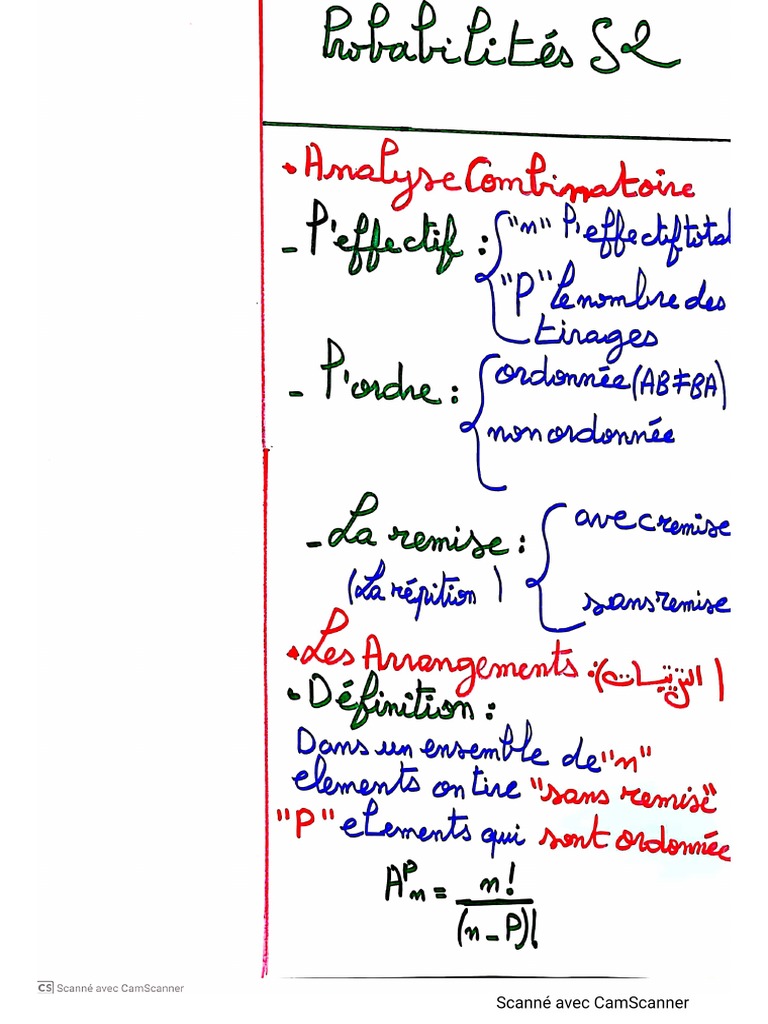 Probabilités S2
• Analyse Combinatoire
- l'effectif : "n" l'effectif total
"P" le nombre des
tirages
- l'ordre : ordonnée (AB≠BA)
non ordonnée
- La remise : avec remise
(La répition) sans remise
• Les Arrangements : (الترتيبات)
• Définition :
Dans un ensemble de "n"
elements on tire "sans remise"
"P" elements qui sont ordonnée
Aᴾn = n! / (n-P)!
CS Scanné avec CamScanner
Scanné avec CamScanner